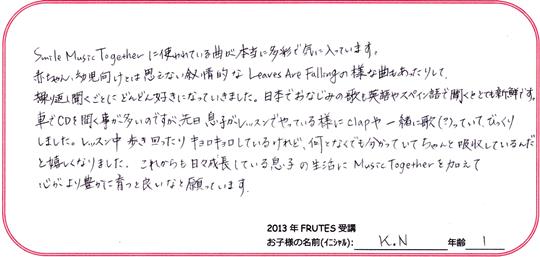 Smile Music Togetherに使われている曲が本当に多彩で気に入っています。
赤ちゃん、幼児向けとは思えない叙情的なLeaves Are Fallingの様な曲もあったりして、
繰り返し聞くごとにどんどん好きになっていきました。日本でおなじみの歌も英語やスペイン語で聞くととても新鮮です。
車でCDを聞く事が多いのですが、先日息子がレッスンでやっている様にclapや一緒に歌(?)っていて、びっくり
しました。レッスン中歩き回ったりキョロキョロしているけれど、何となくでも分かっていてちゃんと吸収しているんだ
と嬉しくなりました。これからも日々成長している息子の生活にMusic Togetherを加えて
心がより豊かに育つと良いなと願っています。
2013年FRUTES受講
お子様の名前(イニシャル): K.N 年齢 1